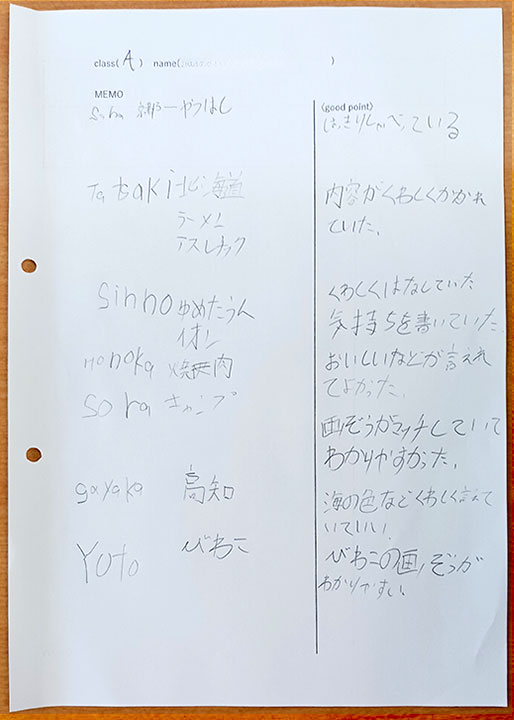 class( A ) name( )
MEMO
(good point)
Sina 京都ーやつはし
はっきりしゃべっている
Tatsaki 北海道
ラーメン
アスレチック
内容がくわしくかかれ
ていた。
Sinno ゆめたうん
イオン
くわしくはなしていた
気持ちを書いていた。
Honoka 火焼肉
おいしいなどが言えれ
てよかった。
Sora キャンプ
画ぞうがマッチしていて
わかりやすかった。
gayaka 高知
海の色などくわしく言えて
いていい!
Yuto びわこ
びわこの画ぞうが
わかりやすい